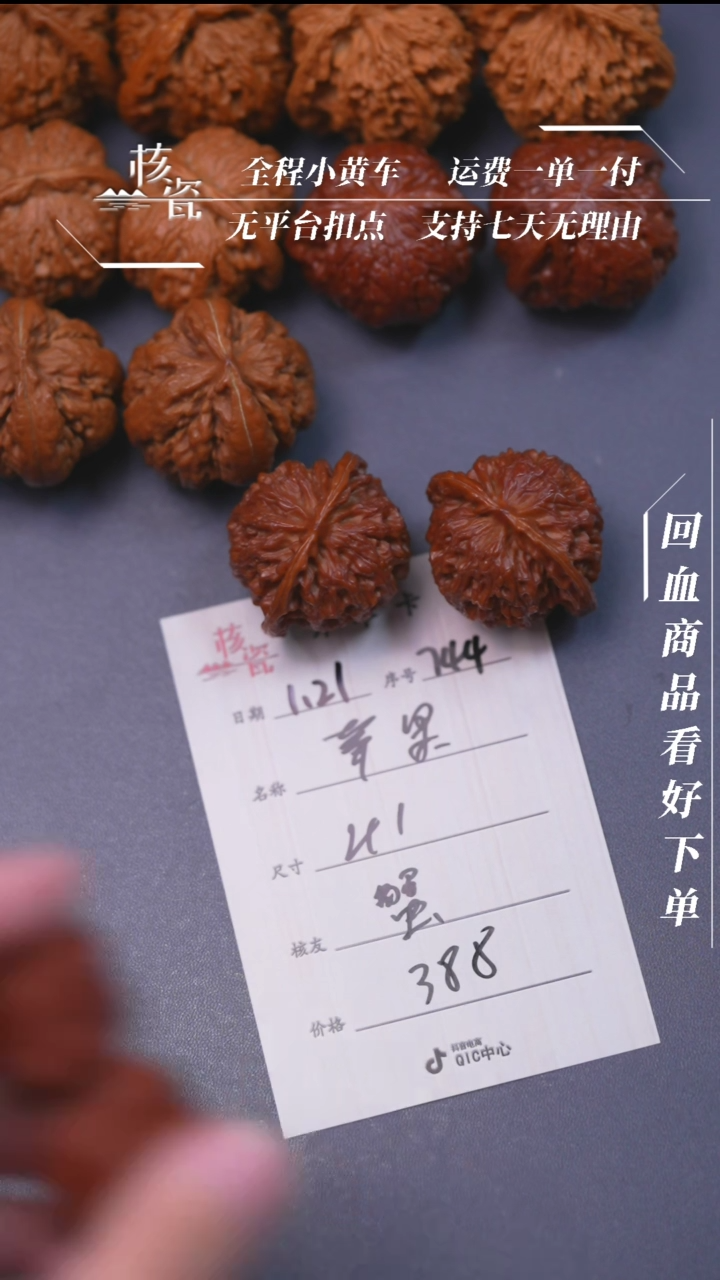 核瓷
全程小黄车 运费一单一付
无平台扣点 支持七天无理由
回血商品看好下单
核瓷
日期 1.21 序号 744
名称 苹果
尺寸 41
核友 蟹
价格 388
抖音电商
QIC中心